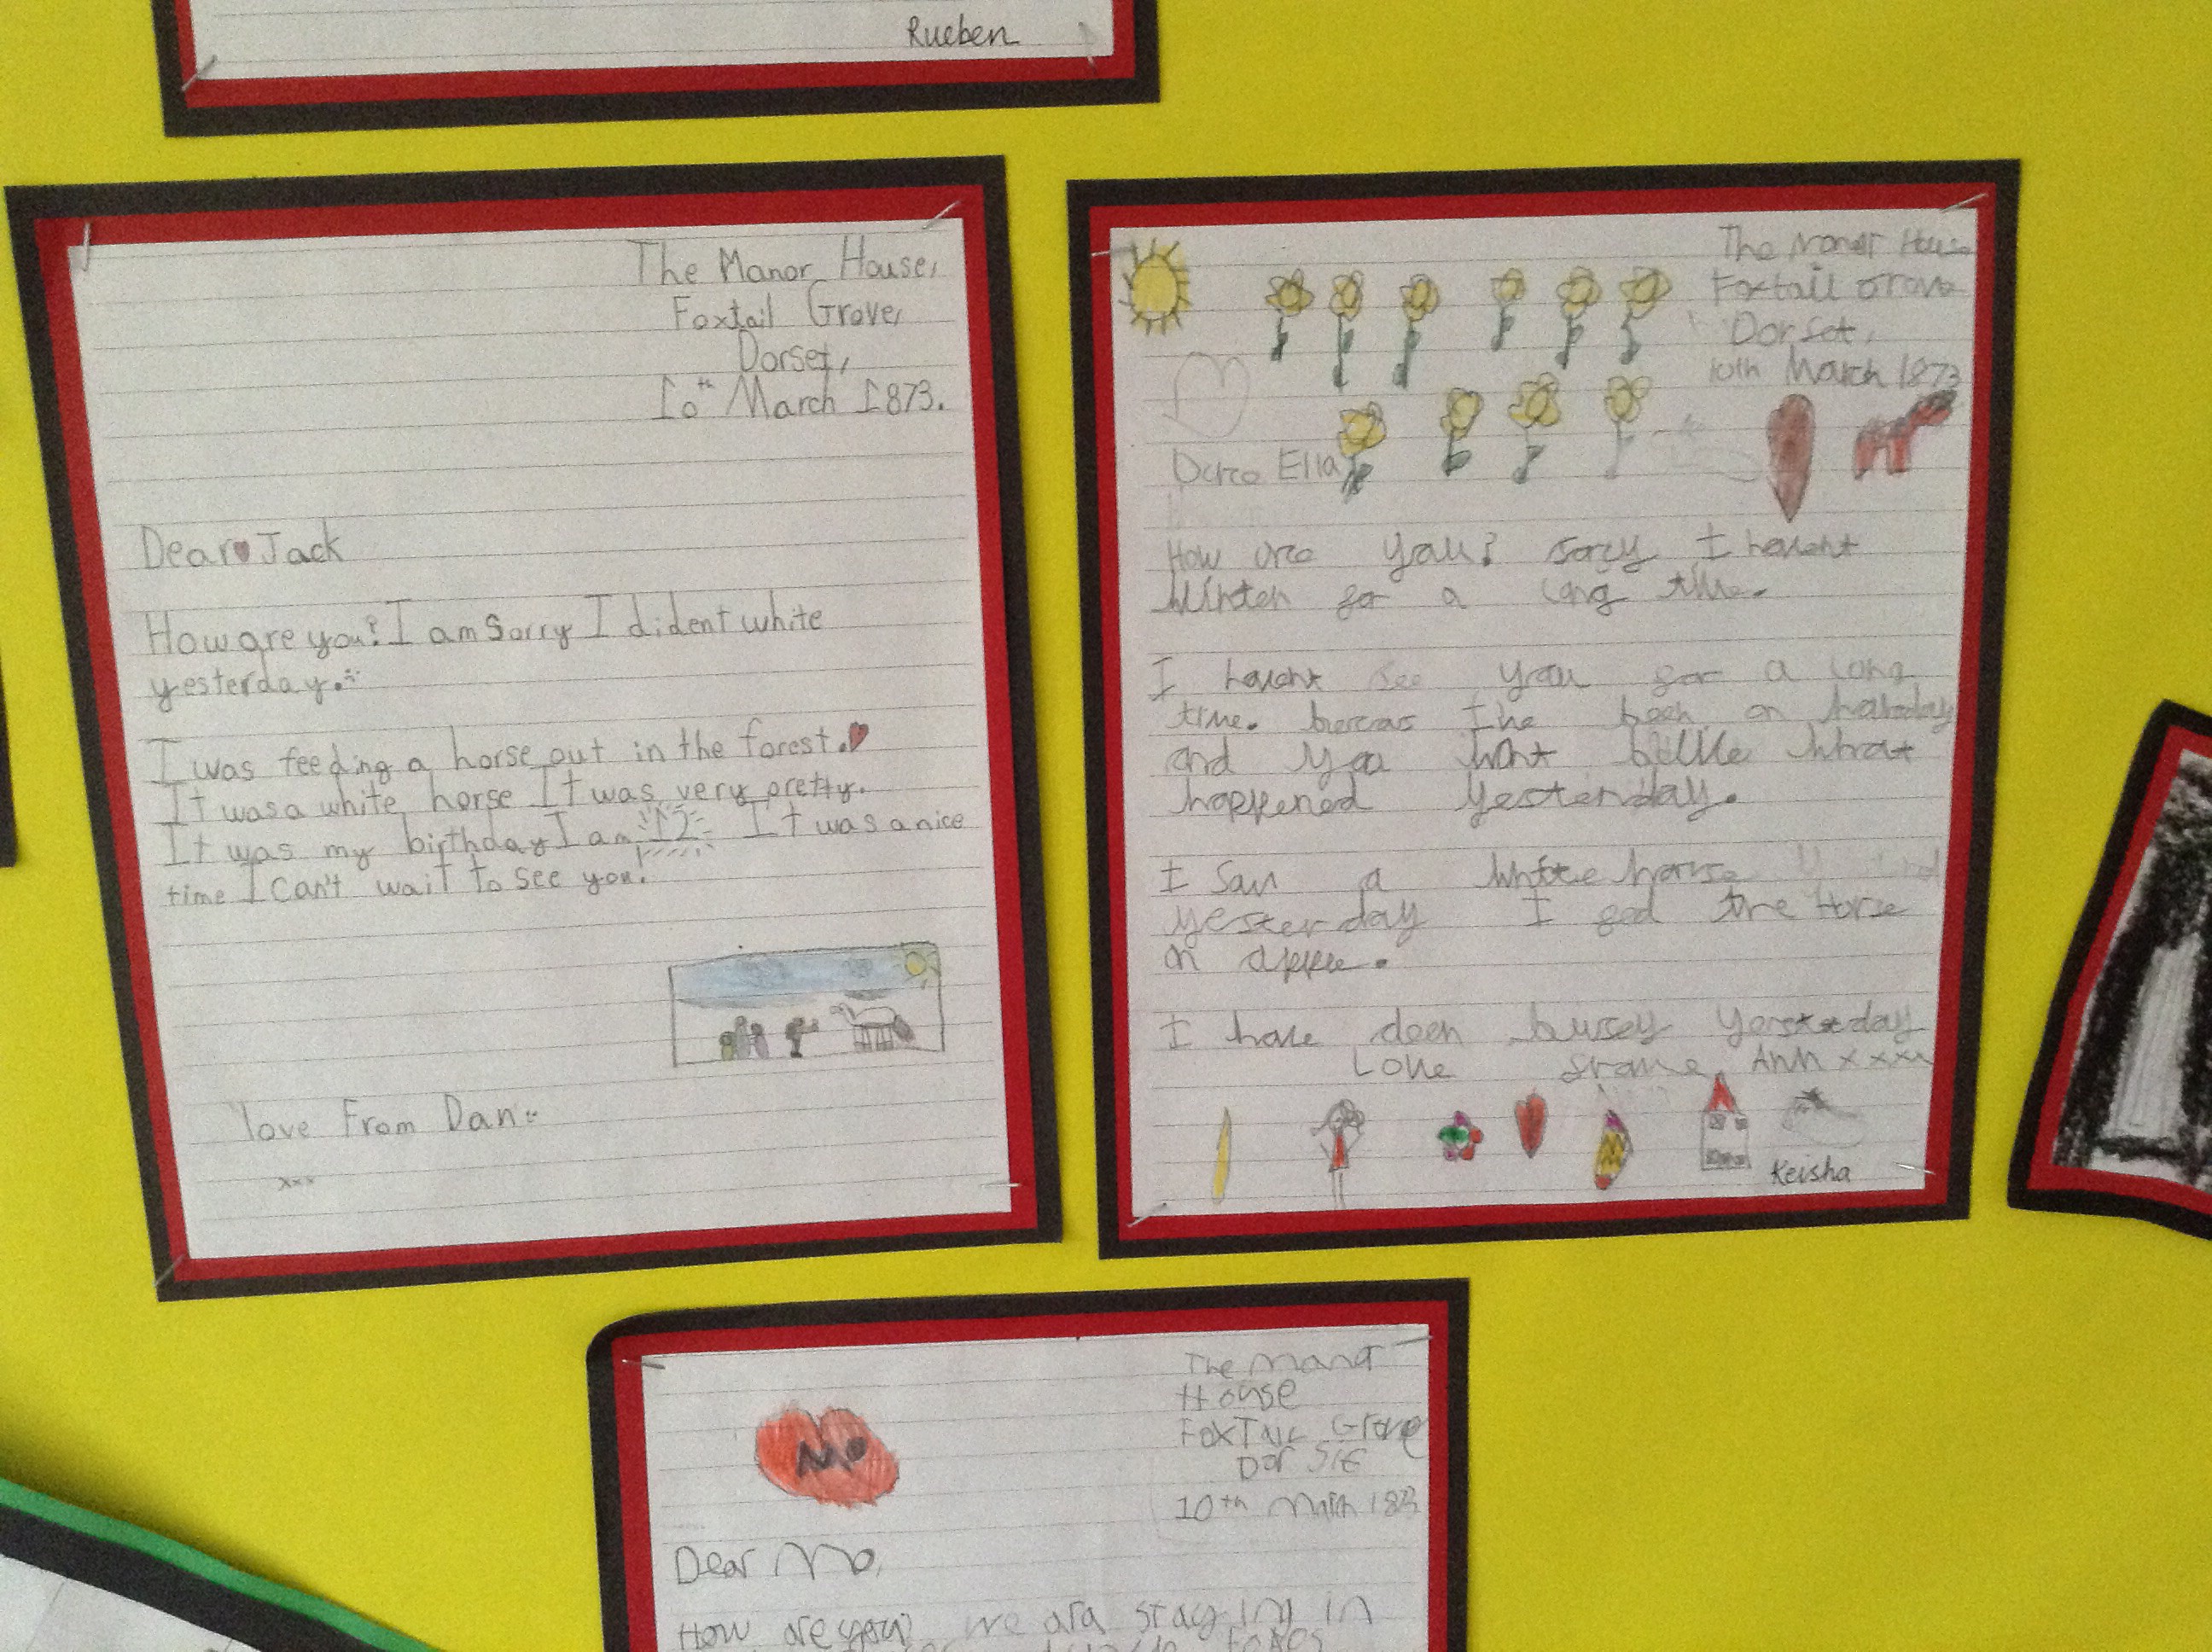 Rueben
The Manor House,
Foxtail Grove,
Dorset,
10th March 1873.
Dear Jack
How are you? I am sorry I dident white
yesterday.
I was feeding a horse out in the forest.
It was a white horse It was very pretty.
It was my birthday I am 12 It was a nice
time I can't wait to see you.
love From Dan
xxx
The Manor House
Foxtail Grove
Dorset,
10th March 1873
Ella
How are you? sorry I havent
for a long time.
I havent see you for a long
time. the been on
and you wont what
happened yesterday.
I saw a white horse
yesterday I fed the Horse
an
I have deen bursey
Love Ann xxxx
Keisha
The Manor
House
FoxTail Grove
10th
Mo
Dear Mo,
How are you we are staying in